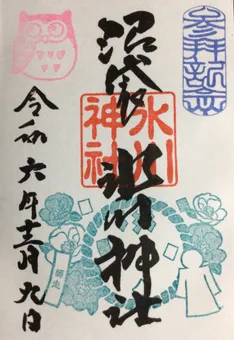 参拝記念
沼袋 氷川神社
氷川
神社
令和六年十二月九日
師走